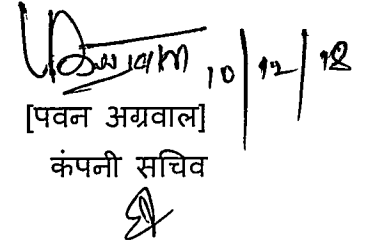 10/12/18
[पवन अग्रवाल]
कंपनी सचिव